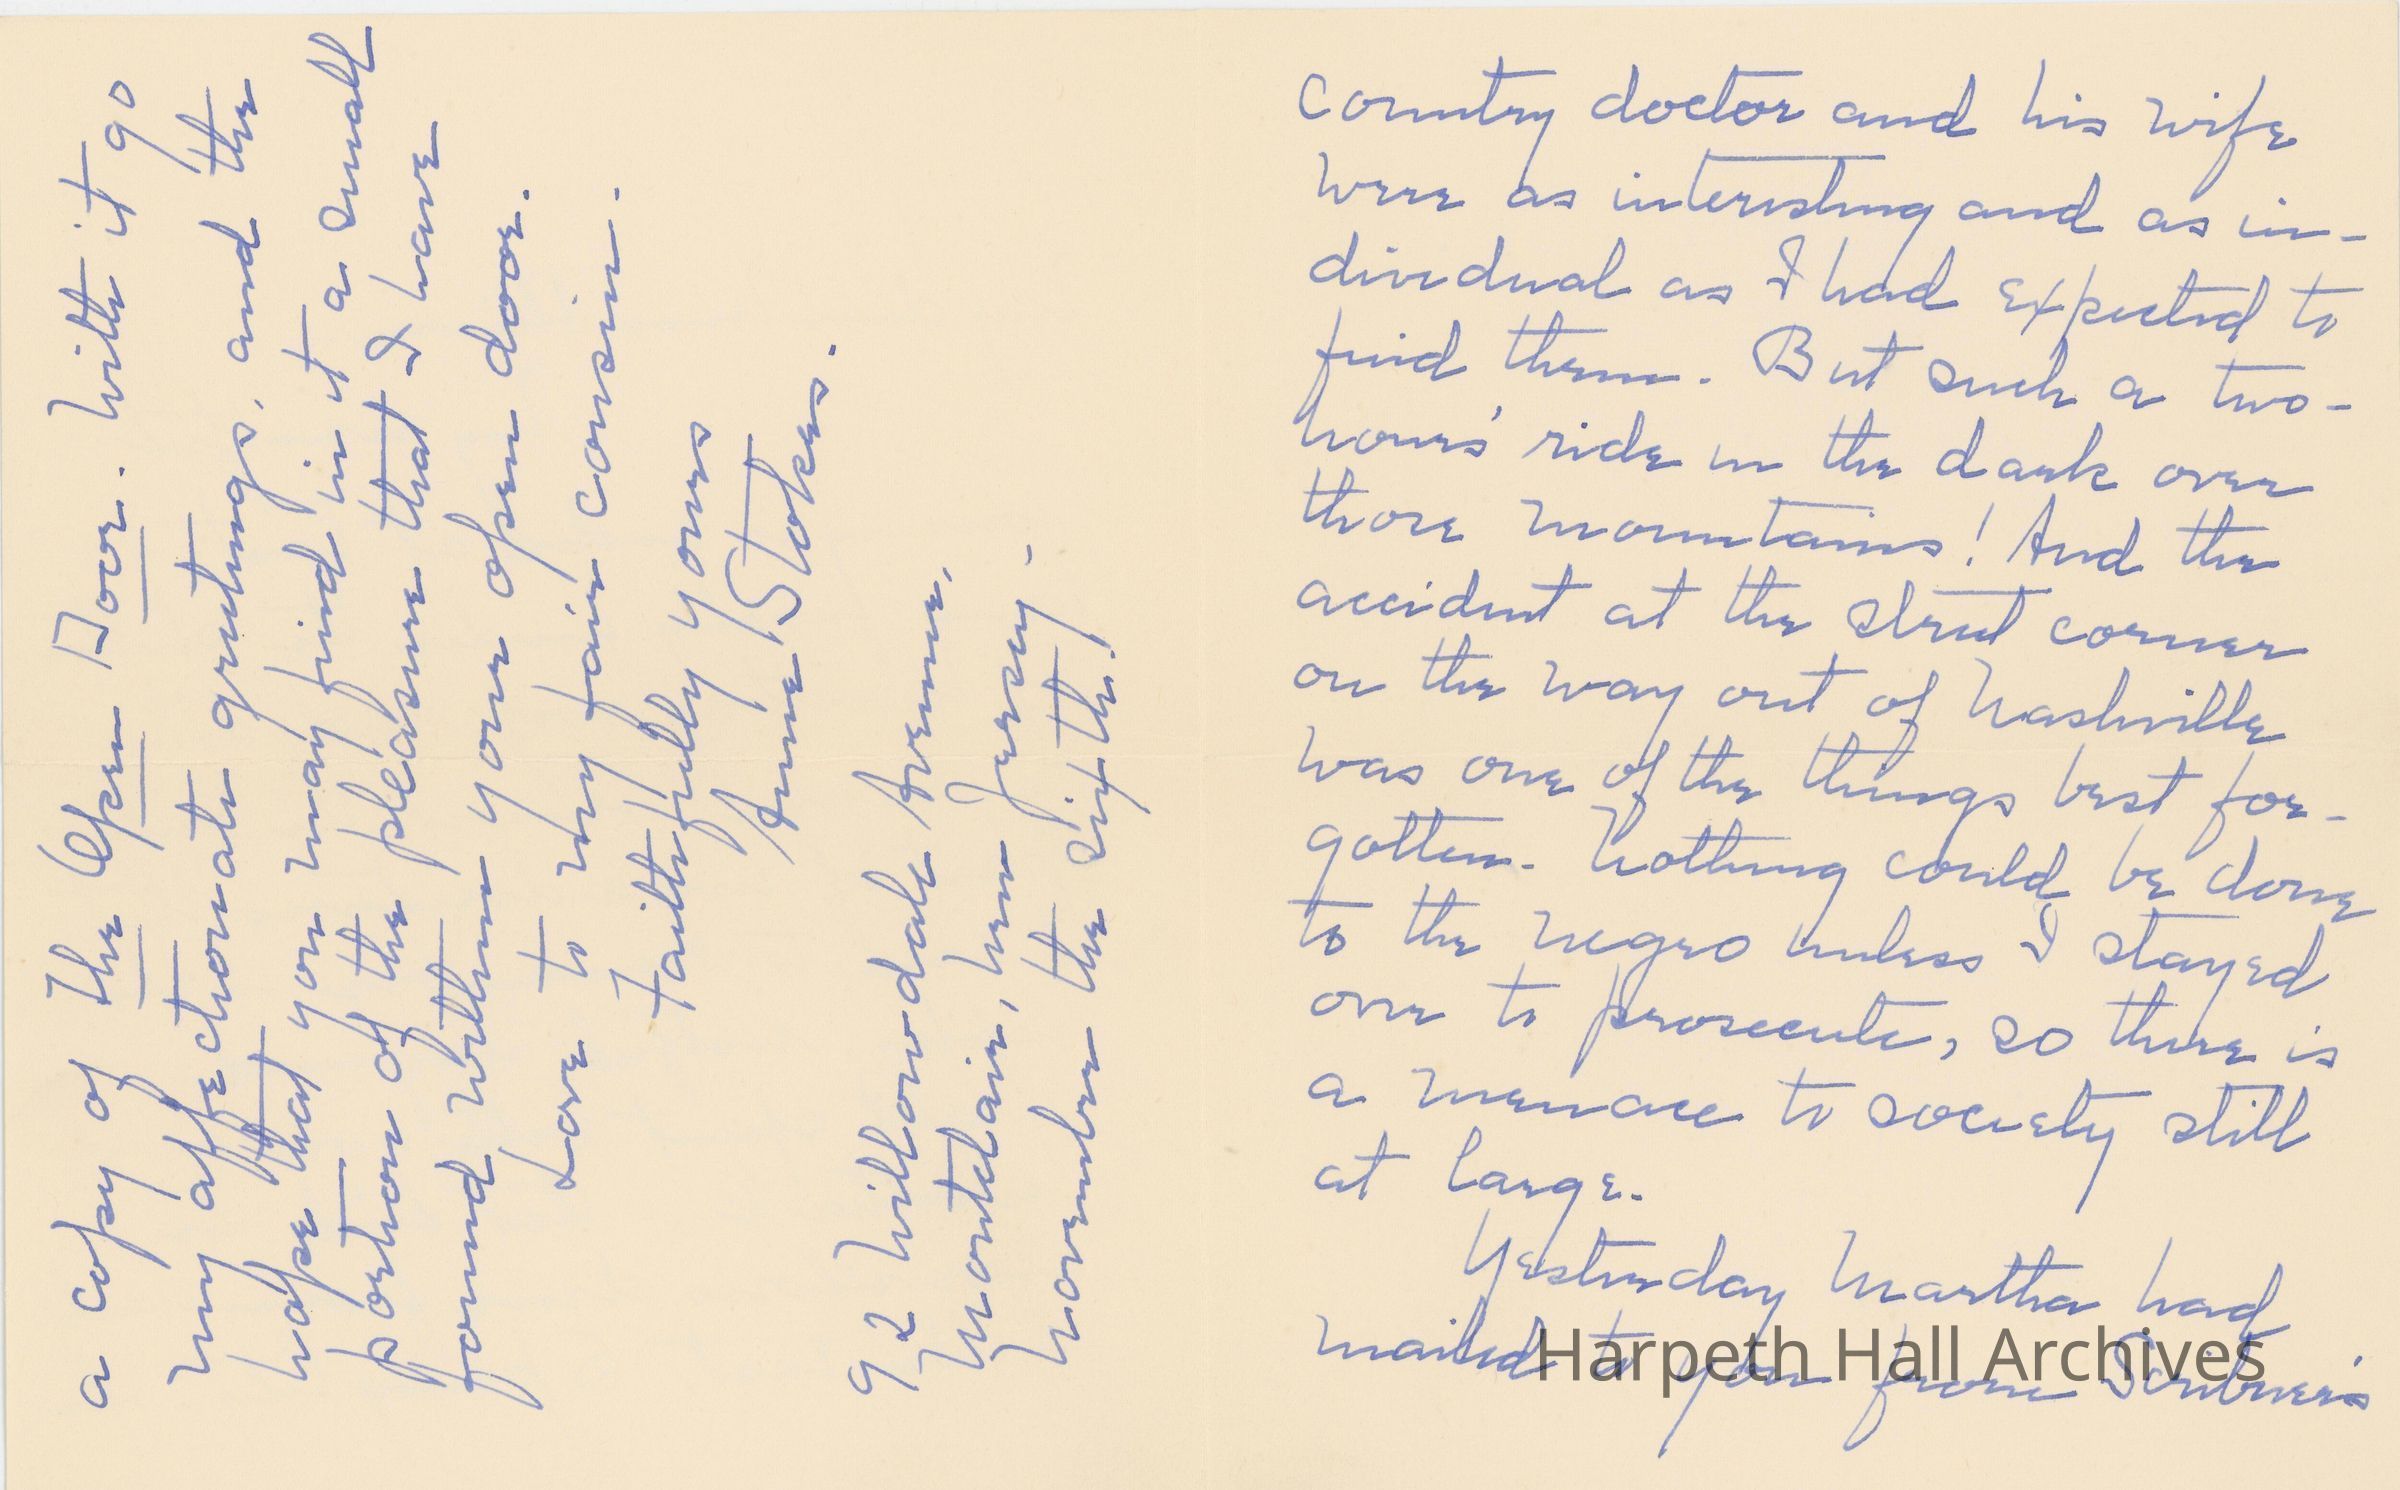 country doctor and his wife
were as interesting and as in-
dividual as I had expected to
find them. But such a two-
hours' ride in the dark over
those mountains! And the
accident at the street corner
on the way out of Nashville
was one of the things best for-
gotten. Nothing could be done
to the negro unless I stayed
over to prosecute, so there is
a menace to society still
at large.
Yesterday Martha had
mailed to you from Scribner's
a copy of The Open Door. With it go
my affectionate greetings, and the
hope that you may find in it a small
portion of the pleasure that I have
found within your open door.
Love to my fair cousin.
Faithfully yours
Anne Stokes.
92 Willowdale Avenue,
Montclair, New Jersey.
November the sixth.
Harpeth Hall Archives